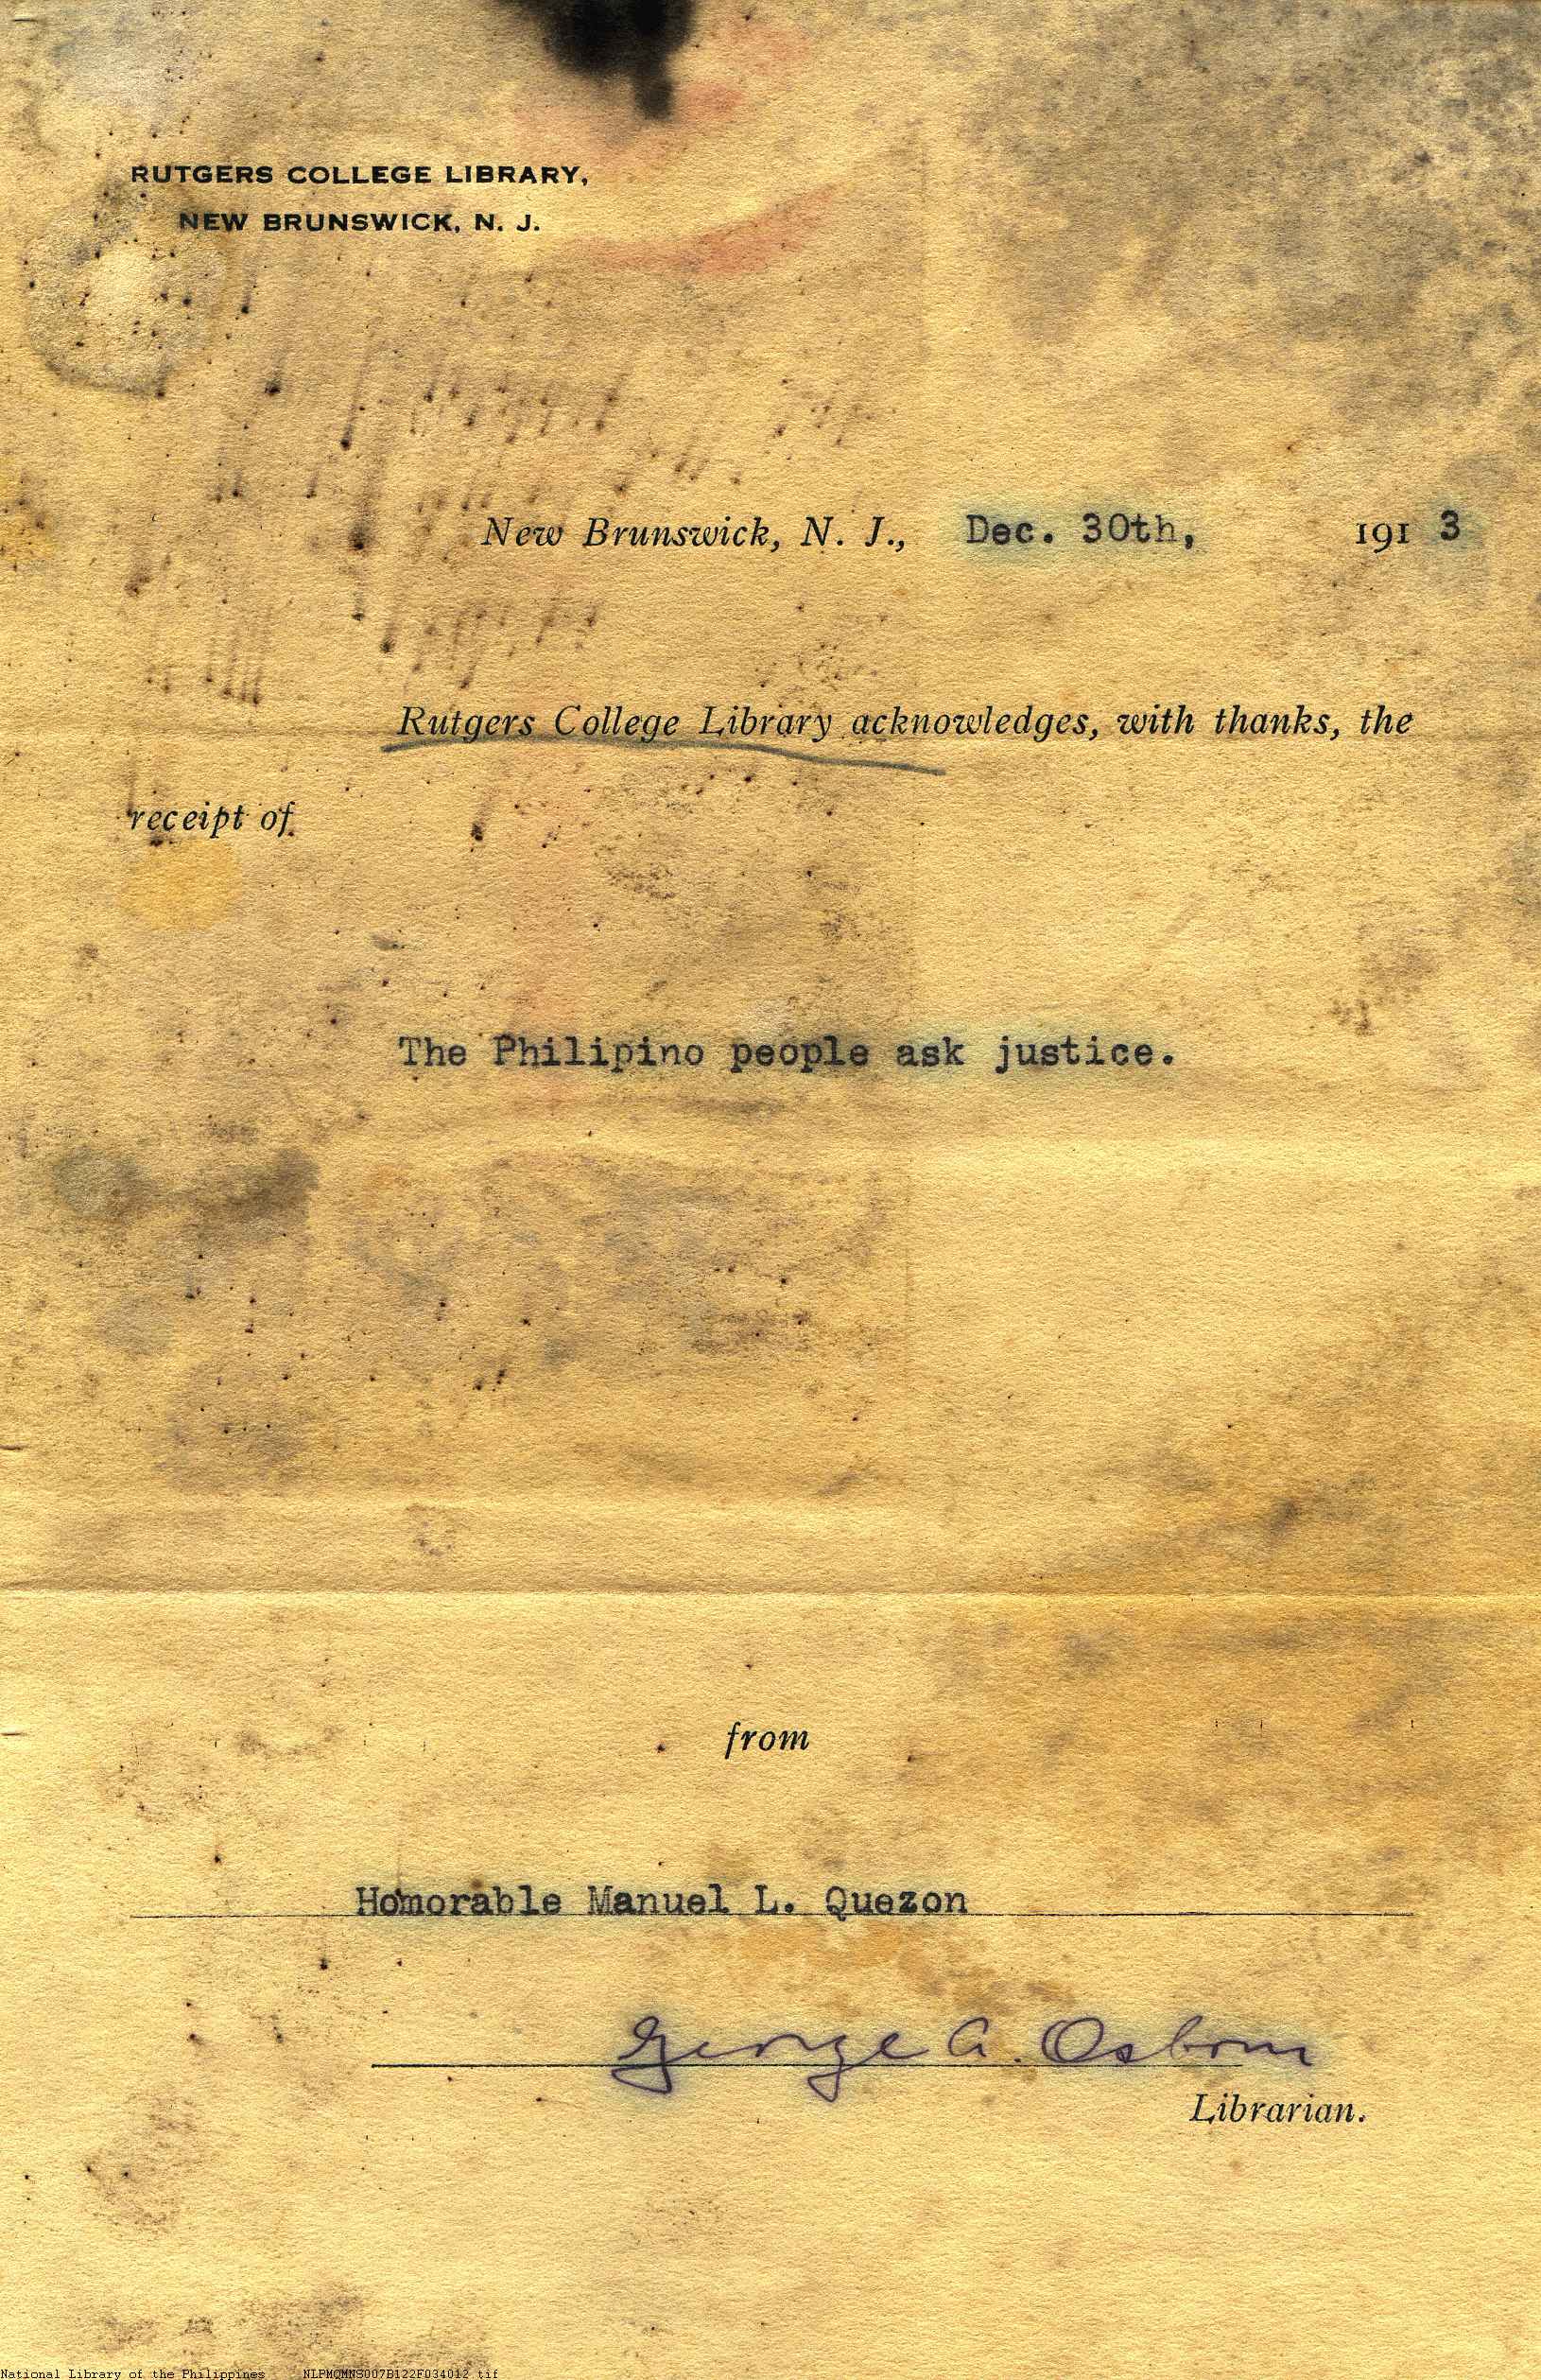 RUTGERS COLLEGE LIBRARY,
NEW BRUNSWICK, N. J.
New Brunswick, N. J., Dec. 30th, 1913
Rutgers College Library acknowledges, with thanks, the
receipt of
The Philipino people ask justice.
from
Homorable Manuel L. Quezon
George A. Osborn
Librarian.
National Library of the Philippines NLPMQMNS007B122F034012.tif